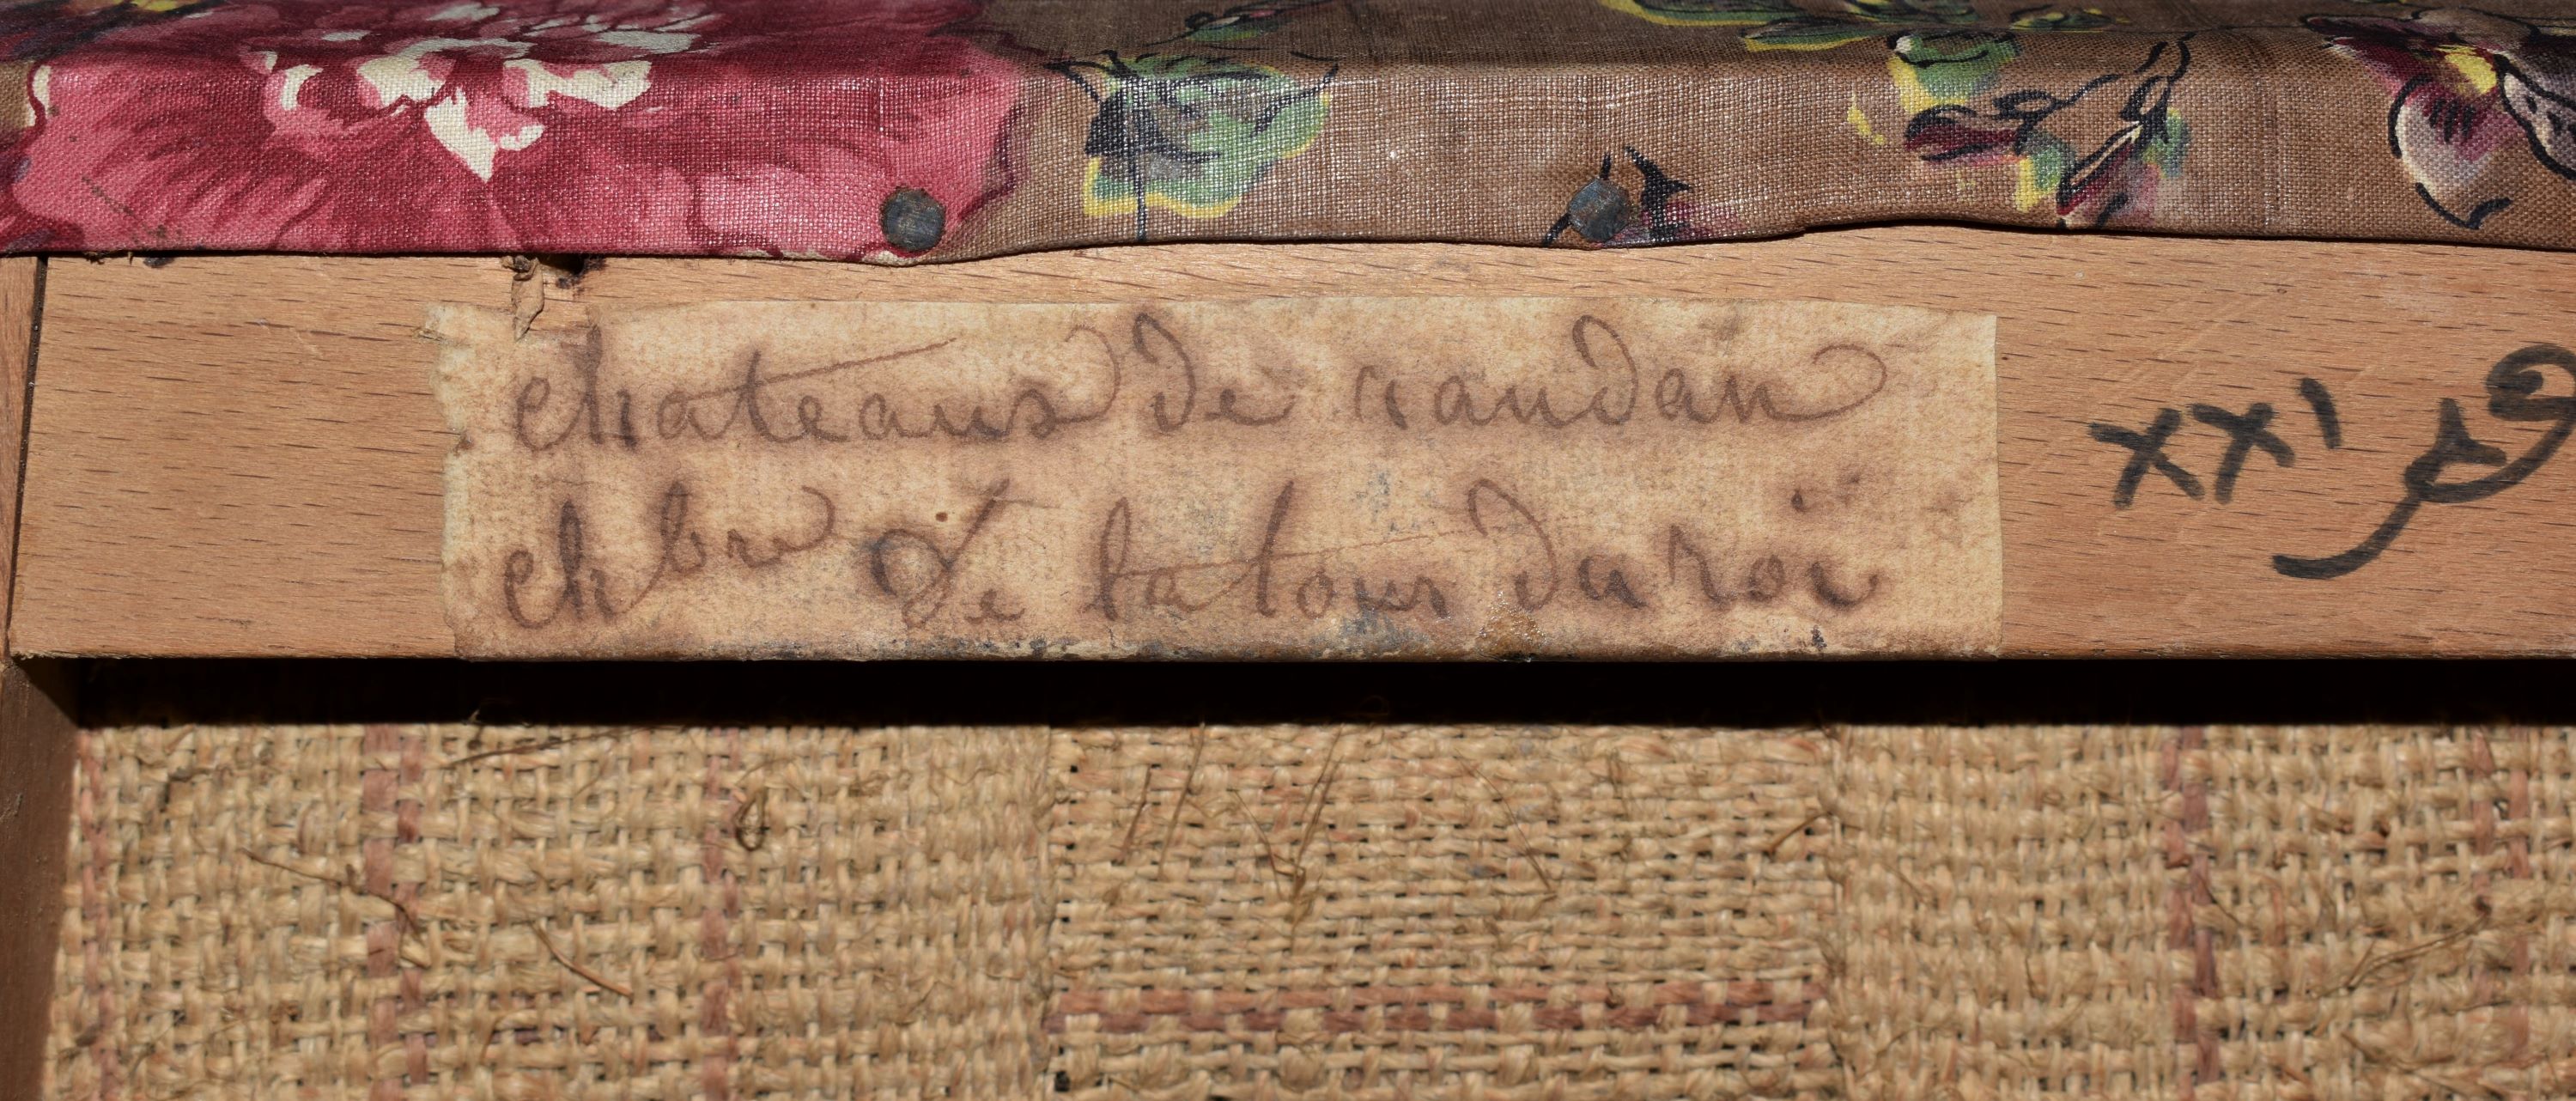 chateaus de randan
chbre de la tour du roi
XXI